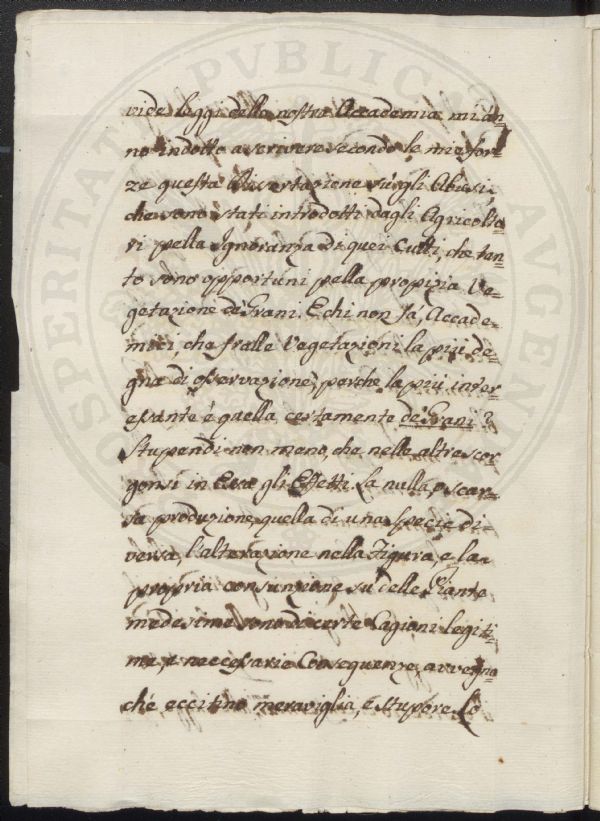 vide leggi della nostra Accademia mi àn=
no indotto a scrivere secondo le mie for=
ze questa Dissertazione sugli Abusi,
che sono stati introdotti dagli Agricolto=
ri pella Ignoranza di quei Culti, che tan=
to sono opportuni pella propizia Ve=
getazione de' Grani. E chi non sà, Accade=
mici, che fralle Vegetazioni la più de=
gna di osservazione, perche la più inter=
essante è quella certamente de' Grani?
Stupendi non meno, che nelle altre scor=
gonsi in Essa gli Effetti. La nulla, o scar=
sa produzione, quella di una specie di=
versa, l'alterazione nella Figura, e la
propria consunzione su delle Piante
medesime sono di certe Cagioni legiti=
me, e necessarie Conseguenze, avvegna=
chè eccitino meraviglia, e stupore. Lo
PROSPERITATI PVBLICAE AVGENDAE